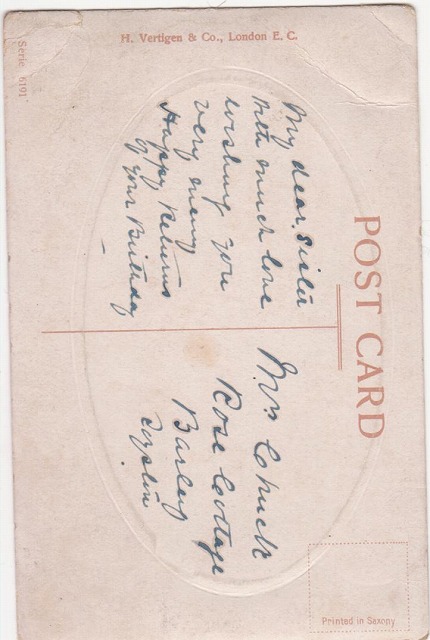 H. Vertigen & Co., London E. C.
Serie 6191
POST CARD
My dear Sister
With much love
wishing you
very many
Happy Returns
of your Birthday
Mrs
Rose Cottage
Barley
Royston
Printed in Saxony